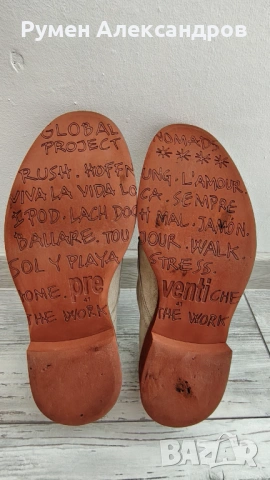 Румен Александров
GLOBAL NOMADS
PROJECT ****
RUSH. HOFFEN LING. L'AMOUR
VIVA LA VIDA LOCA. SEMPRE
POD. LACH DOCH MAL. JAPÓN.
BALLARE. TOU JOUR. WALK.
SOL Y PLAYA STRESS.
OME. pre venti CHE
THE WORK THE WORK
BAZAR